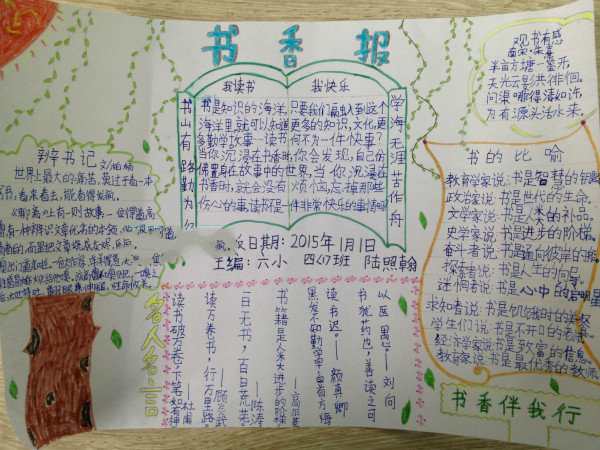 书香报
观书有感
南宋·朱熹
半亩方塘一鉴开
天光云影共徘徊
问渠哪得清如许
为有源头活水来。
我读书
我快乐
书山有路勤为径
学海无涯苦作舟
书是知识的海洋,只要我们融入到这个
海洋里就可以知道更多的知识,文化,更
多勤学故事…读书何不为一件快事?
当你沉浸在书香时你会发现,自己仿
佛置身在故事中的世界,当你沉浸在
书香时,就会没有烦恼,忘掉那些
伤心的事,读书不是一件非常快乐的事情吗
辞书记
世界上最大的痛苦,莫过于看一本
书,看来看去,
有一则故事
书的比喻
教育学家说:书是智慧的钥匙
政治家说:书是世代的生命。
文学家说:书是人类的补品。
史学家说:书是进步的阶梯。
奋斗者说:书是通向彼岸的船
探索者说:书是人生的向导。
迷惘者说:书是心中的启明星
求知者说:书是饥饿时的美餐
学生们说:书是不开口的老师
经济学家说:书是致富的信息
教育家说:书是最优秀的教师
日期:2015年1月1日
主编:六小 四(7)班 陆照翰
名人名言
读书破万卷,下笔如有神
——杜甫
读万卷书,行万里路
——顾炎武
一日无书,百日荒芜
——陈涛
书籍是人类进步的阶梯
——高尔基
黑发不知勤学早,白首方悔
读书迟。——颜真卿
书犹药也,善读之可
以医愚。——刘向
书香伴我行